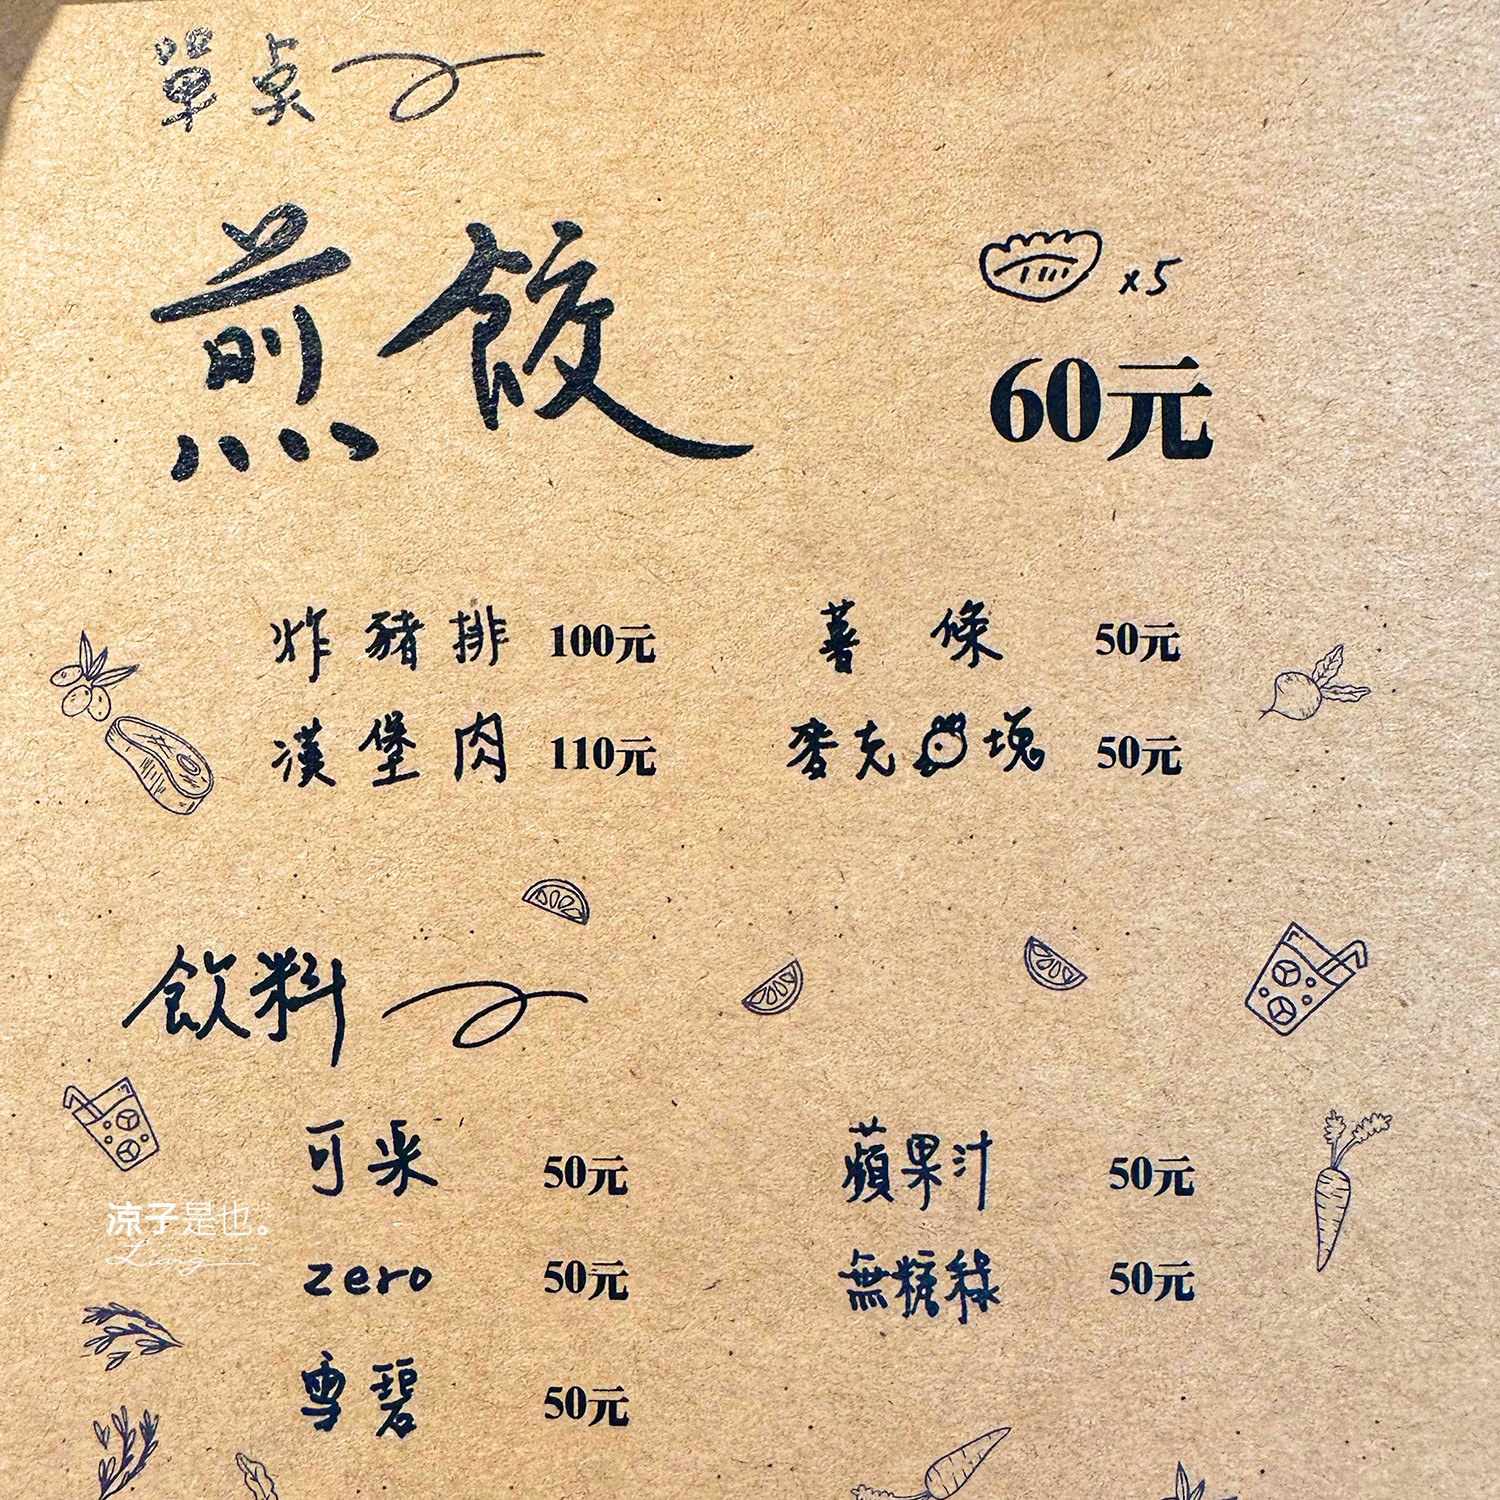 單点
煎餃
x5
60元
炸豬排 100元
薯條 50元
漢堡肉 110元
麥克塊 50元
飲料
可樂 50元
蘋果汁 50元
zero 50元
無糖綠 50元
雪碧 50元
凉子是也。
Liang